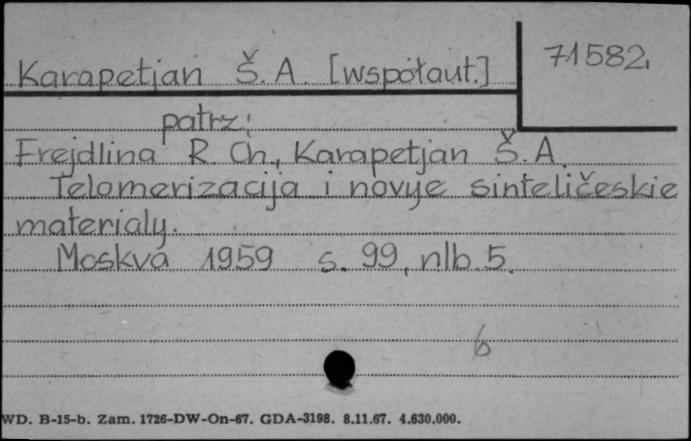 71582,
Karapetjan Š. A. [współaut.]
patrz:
Frejdlina R. Ch., Karapetjan Š. A.
Telomerizacija i novye sinteličeskie
materialy.
Moskva 1959 s. 99, nlb. 5.
6
WD. B-15-b. Zam. 1726-DW-On-67. GDA-3198. 8.11.67. 4.630.000.